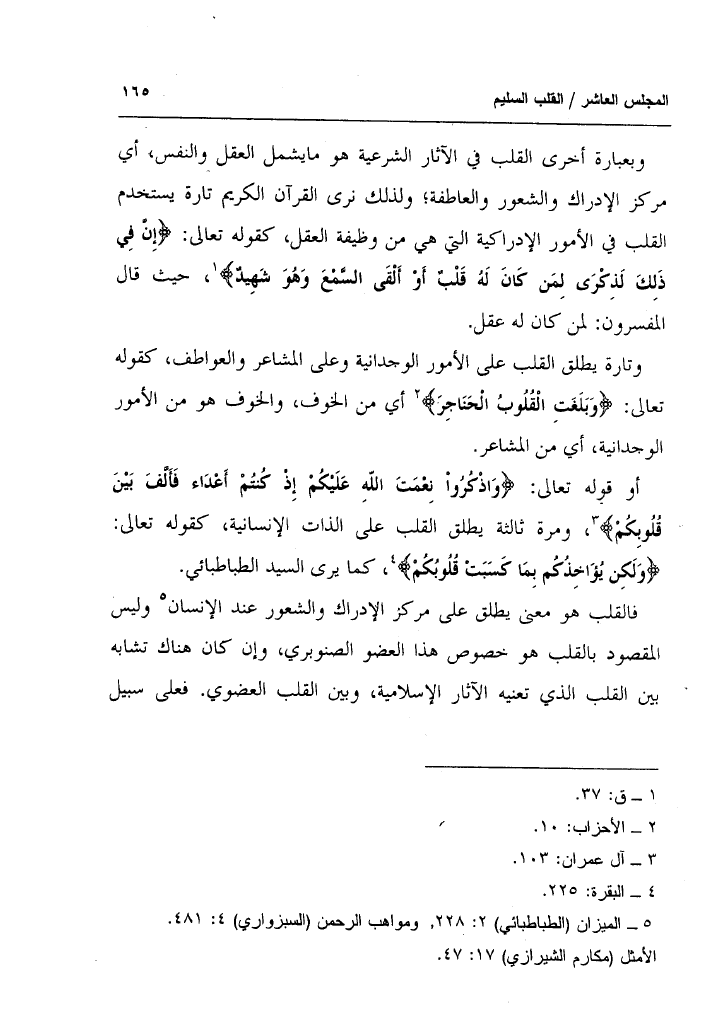 المجلس العاشر / القلب السليم ١٦٥
وبعبارة أخرى القلب في الآثار الشرعية هو مايشمل العقل والنفس، أي
مركز الإدراك والشعور والعاطفة؛ ولذلك نرى القرآن الكريم تارة يستخدم
القلب في الأمور الإدراكية التي هي من وظيفة العقل، كقوله تعالى: ﴿إِنَّ فِي
ذَلِكَ لَذِكْرَى لِمَن كَانَ لَهُ قَلْبٌ أَوْ أَلْقَى السَّمْعَ وَهُوَ شَهِيدٌ﴾١، حيث قال
المفسرون: لمن كان له عقل.
وتارة يطلق القلب على الأمور الوجدانية وعلى المشاعر والعواطف، كقوله
تعالى: ﴿وَبَلَغَتِ الْقُلُوبُ الْحَنَاجِرَ﴾٢ أي من الخوف، والخوف هو من الأمور
الوجدانية، أي من المشاعر.
أو قوله تعالى: ﴿وَاذْكُرُواْ نِعْمَتَ اللّهِ عَلَيْكُمْ إِذْ كُنتُمْ أَعْدَاء فَأَلَّفَ بَيْنَ
قُلُوبِكُمْ﴾٣، ومرة ثالثة يطلق القلب على الذات الإنسانية، كقوله تعالى:
﴿وَلَكِن يُؤَاخِذُكُم بِمَا كَسَبَتْ قُلُوبُكُمْ﴾٤، كما يرى السيد الطباطبائي.
فالقلب هو معنى يطلق على مركز الإدراك والشعور عند الإنسان٥ وليس
المقصود بالقلب هو خصوص هذا العضو الصنوبري، وإن كان هناك تشابه
بين القلب الذي تعنيه الآثار الإسلامية، وبين القلب العضوي. فعلى سبيل
١ ـ ق: ٣٧.
٢ ـ الأحزاب: ١٠.
٣ ـ آل عمران: ١٠٣.
٤ ـ البقرة: ٢٢٥.
٥ ـ الميزان (الطباطبائي) ٢: ٢٢٨, ومواهب الرحمن (السبزواري) ٤: ٤٨١.
الأمثل (مكارم الشيرازي) ١٧: ٤٧.